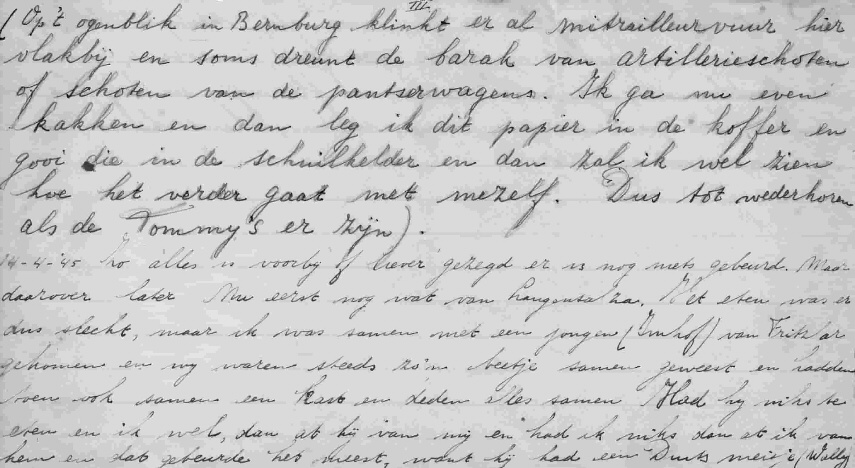 III.
(Op't ogenblik in Bernburg klinkt er al mitrailleurvuur hier
vlakbij en soms dreunt de barak van artillerieschoten
of schoten van de pantserwagens. Ik ga nu even
kakken en dan leg ik dit papier in de koffer en
gooi die in de schuilkelder en dan zal ik wel zien
hoe het verder gaat met mezelf. Dus tot wederhoren
als de Tommy's er zijn).
14-4-'45 Zo alles is voorbij of liever gezegd er is nog niets gebeurd. Maar
daarover later Nu eerst nog wat van Langensalza. Het eten was er
dus slecht, maar ik was samen met een jongen (Imhof) van Fritzlar
gekomen en wy waren steeds zo'n beetje samen geweest en hadden
toen ook samen een kast en deden alles samen Had hy niks te
eten en ik wel, dan at hij van mij en had ik niks dan at ik van
hem en dat gebeurde het meest, want hij had een Duits meisje (Wally)